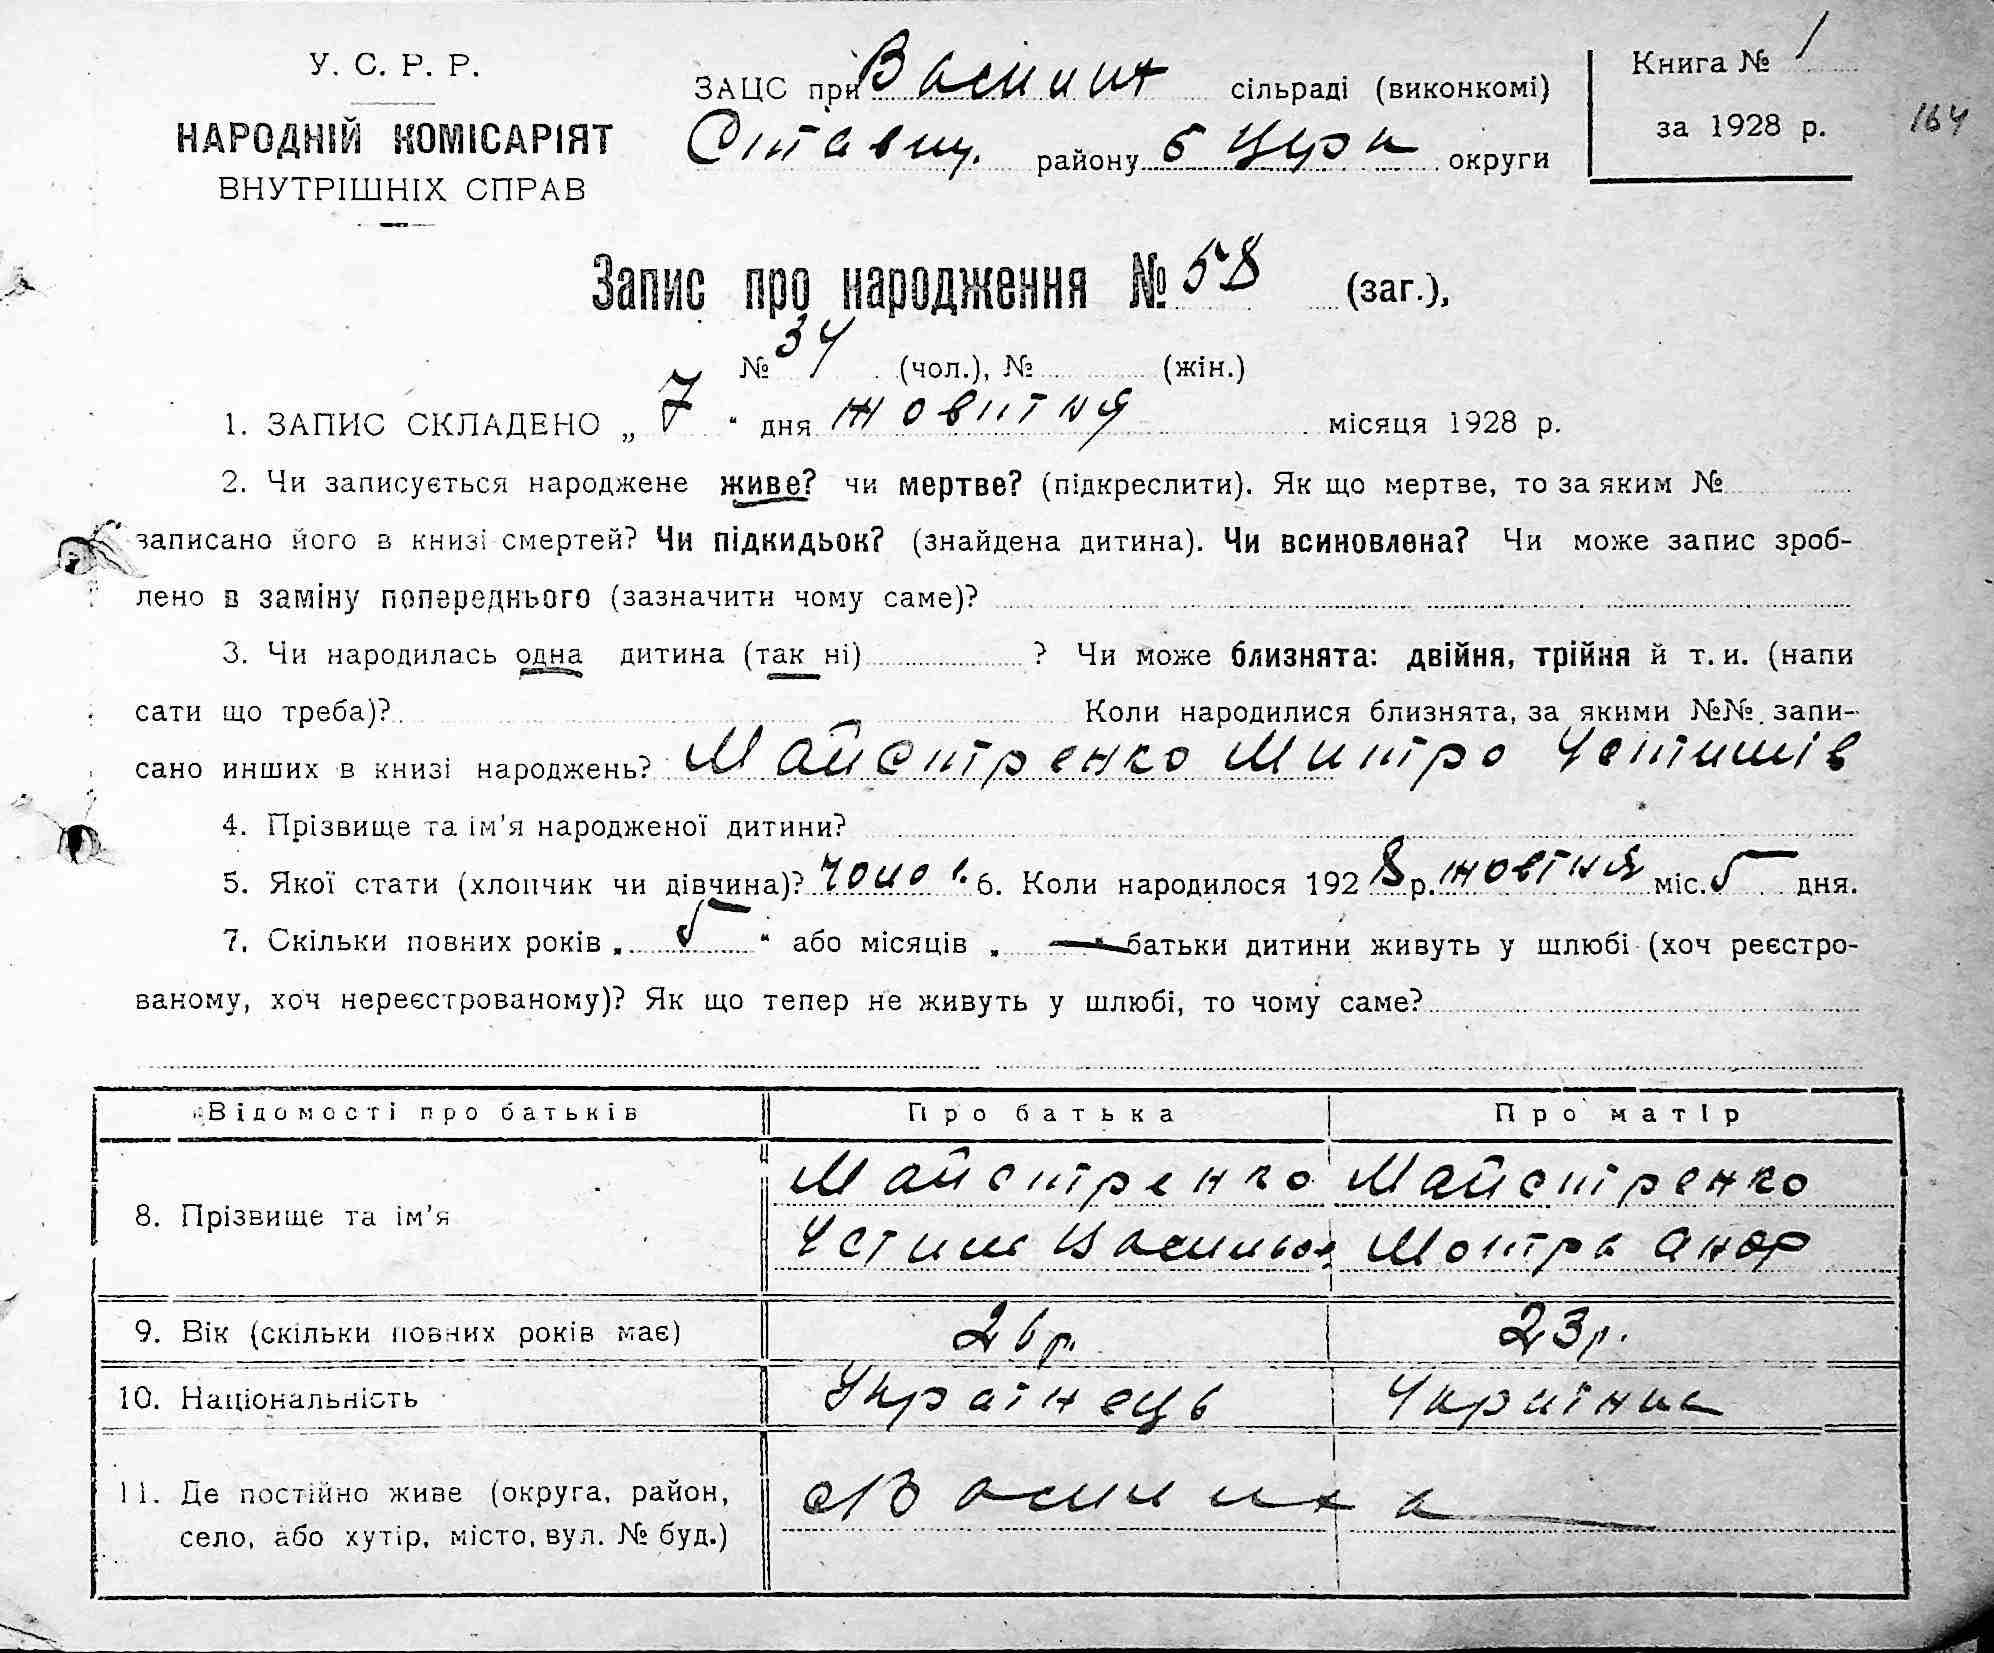 У. С. Р. Р.
НАРОДНІЙ КОМІСАРІЯТ
ВНУТРІШНІХ СПРАВ
ЗАЦС при Васили сільраді (виконкомі)
Ставищ. району Б Церк округи
Книга № 1
за 1928 р.
164
Запис про народження № 58 (заг.),
№ 34 (чол.), № (жін.)
1. ЗАПИС СКЛАДЕНО „ 7 “ дня жовтня місяця 1928 р.
2. Чи записується народжене живе? чи мертве? (підкреслити). Як що мертве, то за яким №
записано його в книзі смертей? Чи підкидьок? (знайдена дитина). Чи всиновлена? Чи може запис зроб-
лено в заміну попереднього (зазначити чому саме)?
3. Чи народилась одна дитина (так ні) ? Чи може близнята: двійня, трійня й т. и. (напи
сати що треба)? Коли народилися близнята, за якими №№ запи-
сано инших в книзі народжень? Майстренко Митро Устимів
4. Прізвище та ім’я народженої дитини?
5. Якої стати (хлопчик чи дівчина)? чолов. 6. Коли народилося 1928 р. жовтня міс. 5 дня.
7. Скільки повних років „ 5 “ або місяців „ — “ батьки дитини живуть у шлюбі (хоч реєстро-
ваному, хоч нереєстрованому)? Як що тепер не живуть у шлюбі, то чому саме?
Відомості про батьків Про батька Про матір
8. Прізвище та ім’я Майстренко Майстренко
Устим Мотра
9. Вік (скільки повних років має) 26 р. 23 р.
10. Національність Українець Українка
11. Де постійно живе (округа, район,
село, або хутір, місто, вул. № буд.)